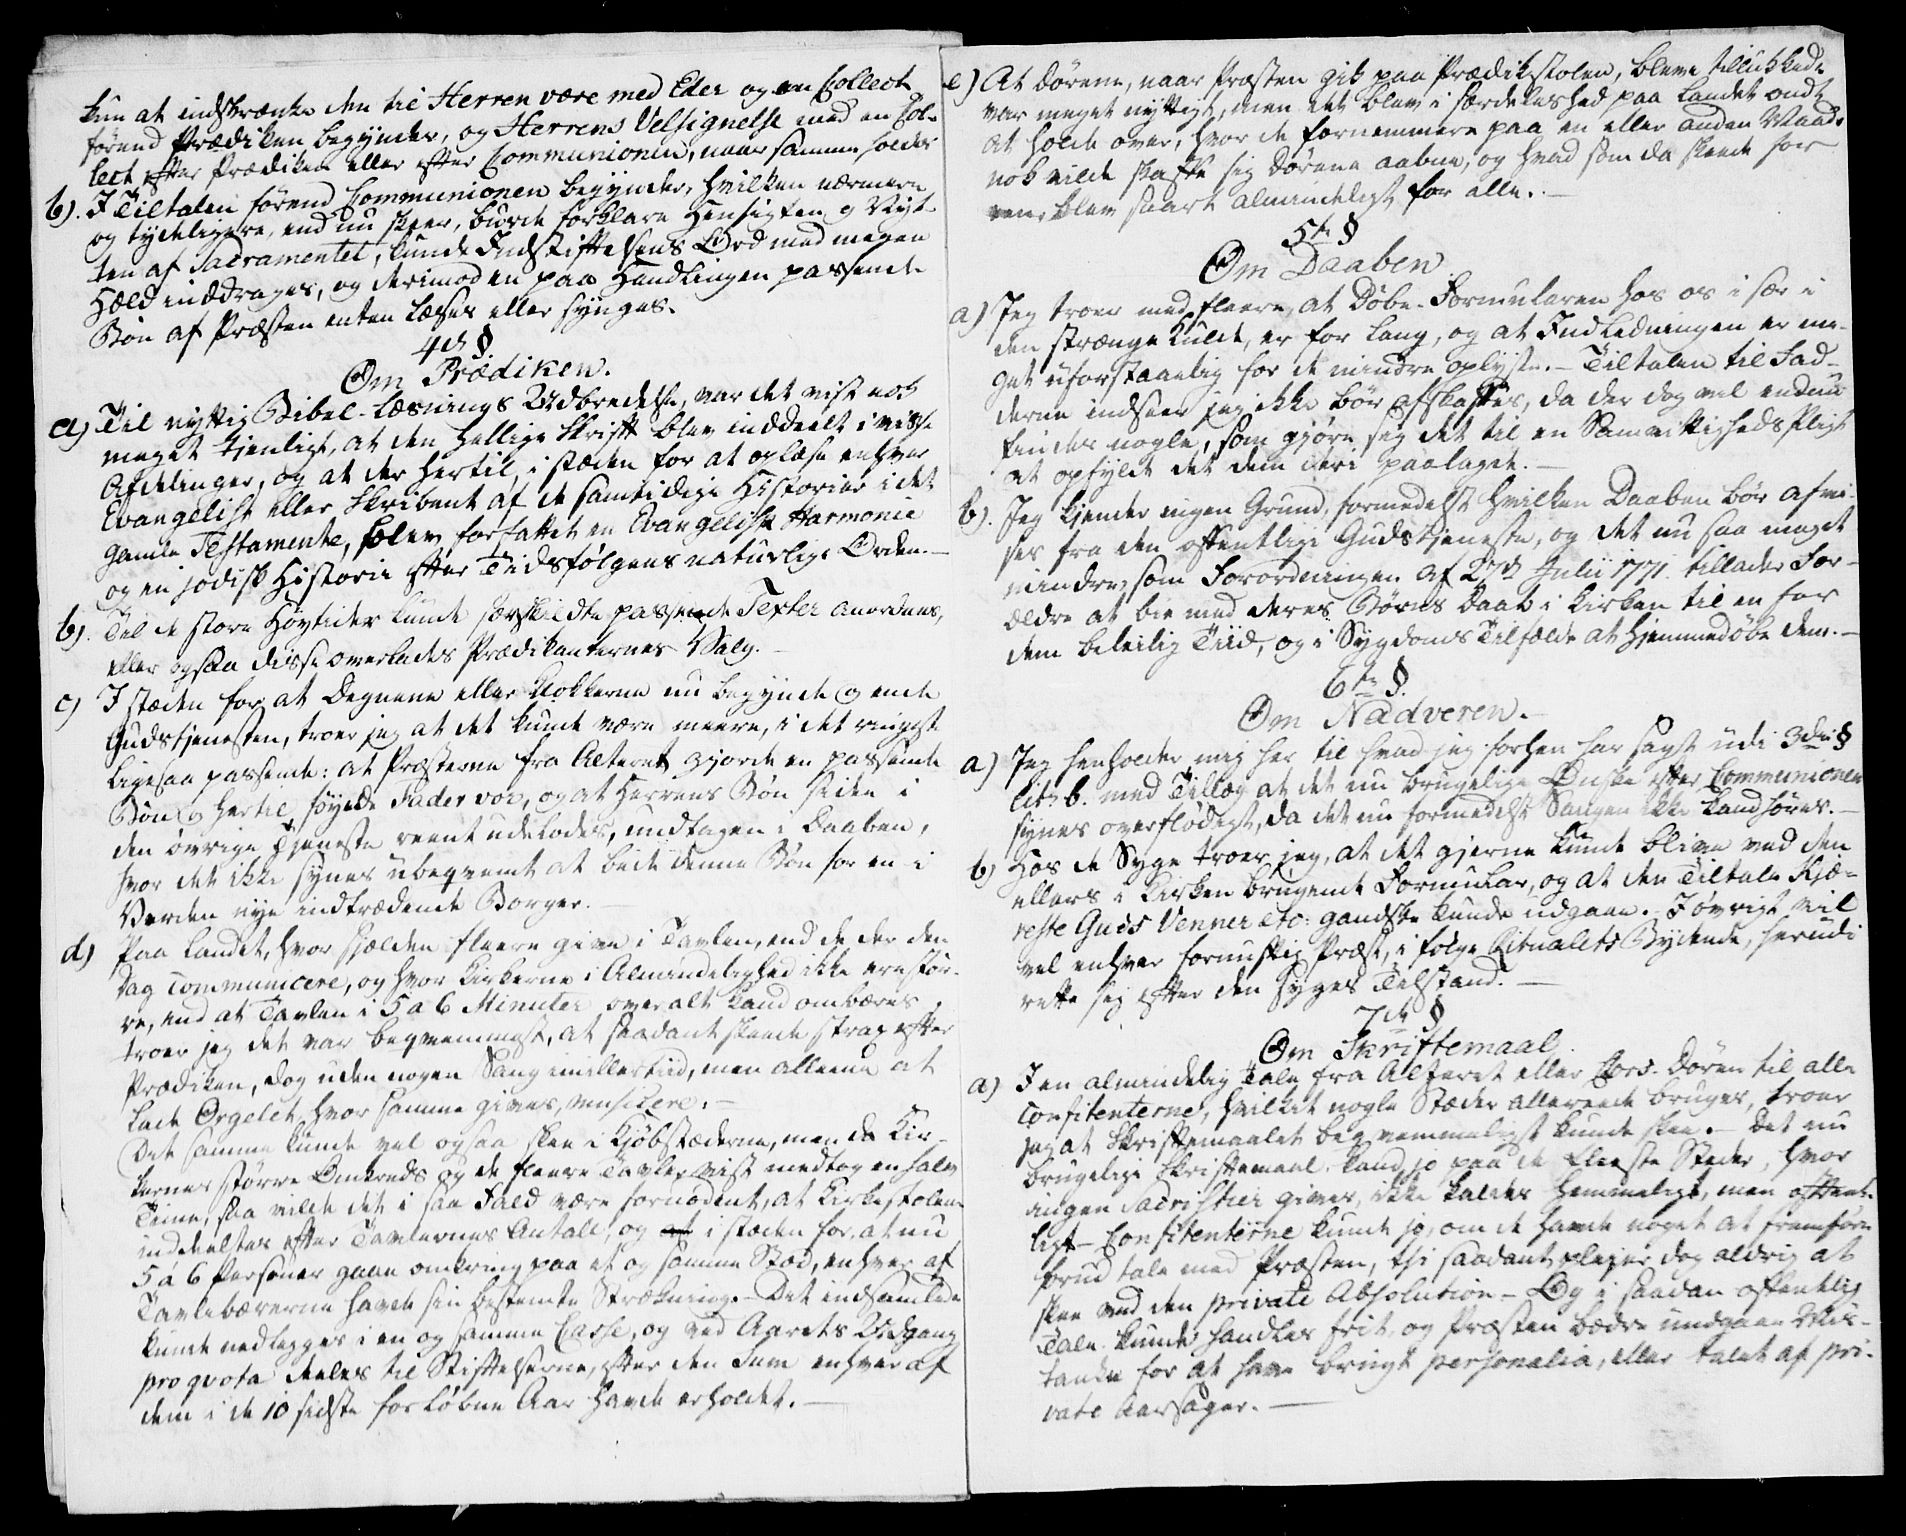 kun at indskrænke den til Herren være med Eder og en Collect
førend Prædiken begynder, og Herrens Velsignelse med en Col-
lect efter Prædiken eller efter Communionen, naar samme holdes
b). I Tiltalen førend Communionen begynder, hvilken nærmere
og tydeligere, end nu skeer, burde forklare Hensigten og Vigt-
ten af Sacramentet, kunde Indstiftelsens Ord med megen
Held inddrages, og derimod en paa Handlingen passende
Bøn af Præsten enten læses eller synges.
4de §.
Om Prædiken.
a) Til nyttig Bibel-Læsnings Udbredelse, var det vist nok
meget tjenligt, at den hellige Skrift blev inddeelt i visse
Afdelinger, og at der hertil, i stæden for at oplæse enhver
Evangelist eller Skribent af de samtidige Historier i det
gamle Testamente, blev forfattet en Evangelisk Harmonie
og en jødisk Historie efter Tidsfølgens naturlige Orden. -
b). Til de store Høytider kunde særskildte passende Texter anordnes,
eller ogsaa disse overlades Prædikanternes Valg. -
c) I stæden for at Degnene eller Klokkerne nu begynde og ende
Gudstjenesten, troer jeg at det kunde være meere, i det ringeste
ligesaa passende: at Præsterne fra Alteret gjorde en passende
Bøn og hertil føyede Fader vor, og at Herrens Bøn siden i
den øvrige Tjeneste reent udelodes, undtagen i Daaben,
hvor det ikke synes ubeqvemt at bede denne Bøn for en i
Verden nye indtrædende Borger. -
d) Paa Landet, hvor sjælden fleere give i Tavlen, end de der den
Dag communicere, og hvor Kirkerne i Almindelighed ikke ere stør-
re, end at Tavlen i 5 a 6 Minuter overalt kand ombæres,
troer jeg det var beqvemmest, at saadant skeede strax efter
Prædiken, dog uden nogen Sang imillertiid, men alleene at
lade Orgelet, hvor samme gives, musicere. -
Det samme kunde vel ogsaa skee i Kjøbstæderne, men da Kir-
kernes større Omkreds og de fleere Tavler vist medtog en halv
Time, saa vilde det i saa Fald være fornødent, at Kirkestolene
inddeeltes efter Tavlernes Antall, og at i stæden for, at nu
5 á 6 Personer gaae omkring paa et og samme Stæd, enhver af
Tavlebærerne havde sin bestemte Strækning. - Det indsamlede
kunde nedlægges i en og samme Casse, og ved Aarets Udgang
pro qvota deeles til Stiftelserne, efter den Sum enhver af
dem i de 10 sidste forløbne Aar havde erholdet. -
e) At Dørene, naar Præsten gik paa Prædikstolen, bleve tillukkede
var meget nyttigt, men det blev i særdeleshed paa Landet ondt
at holde over, hvor de fornemmere paa en eller anden Maade
nok vilde skaffe sig Dørene aabne, og hvad som da skeede for
een, blev snart almindeligt for alle. -
5te §
Om Daaben
a) Jeg troer med fleere, at Døbe-Formularen hos os i sær i
den strænge Kulde, er for lang, og at Indledningen er me-
get uforstaaelig for de mindre oplyste. - Tiltalen til Fad-
derne indseer jeg ikke bør afskaffes, da der dog vel endnu
findes nogle, som gjøre sig det til en Samvittigheds Pligt
at opfylde det dem deri paalagde. -
b). Jeg kjender ingen Grund, formedelst hvilken Daaben bør afvi-
ses fra den offentlige Gudstjeneste, og det nu saa meget
mindre, som Forordningen af 27de Julii 1771. tillader For-
ældre at bie med deres Børns Daab i Kirken til en for
dem beleilig Tiid, og i Sygdoms Tilfælde at hjemmedøbe dem. -
6te §.
Om Nadveren. -
a) Jeg henholder mig her til hvad jeg forhen har sagt udi 3die §
litr b. med Tillæg at det nu brugelige Ønske efter Communionen
synes overflødigt, da det nu formedelst Sangen ikke kand høres. -
b) Hos de Syge troer jeg, at det gjerne kunde blive ved den
ellers i Kirken brugende Formular, og at den Tiltale Kjæ-
reste Guds Venner etc: gandske kunde udgaae. I øvrigt vil
vel enhver fornuftig Præst, i følge Ritualets Bydende, herudi
rette sig efter den syges Tilstand. -
7de §
Om Skriftemaal.
a) I en almindelig Tale fra Alteret eller Chors-Døren til alle
Confitenterne, hvilket nogle Stæder allereede bruges, troer
jeg at Skriftemaalet beqvemmeligst kunde skee. - Det nu
brugelige Skriftemaal kand jo paa de fleeste Steder, hvor
ingen Sacristier gives, ikke kaldes hemmeligt, men offent-
ligt - Confitenterne kunde jo, om de havde noget at fremføre
forud tale med Præsten, thi saadant pleyer dog aldrig at
skee ved den private Absolution - Og i saadan offentlig
Tale kunde handles frit, og Præsten bedre undgaae Mis-
tanke for at have brugt personalia, eller talet af pri-
vate Aarsager. -